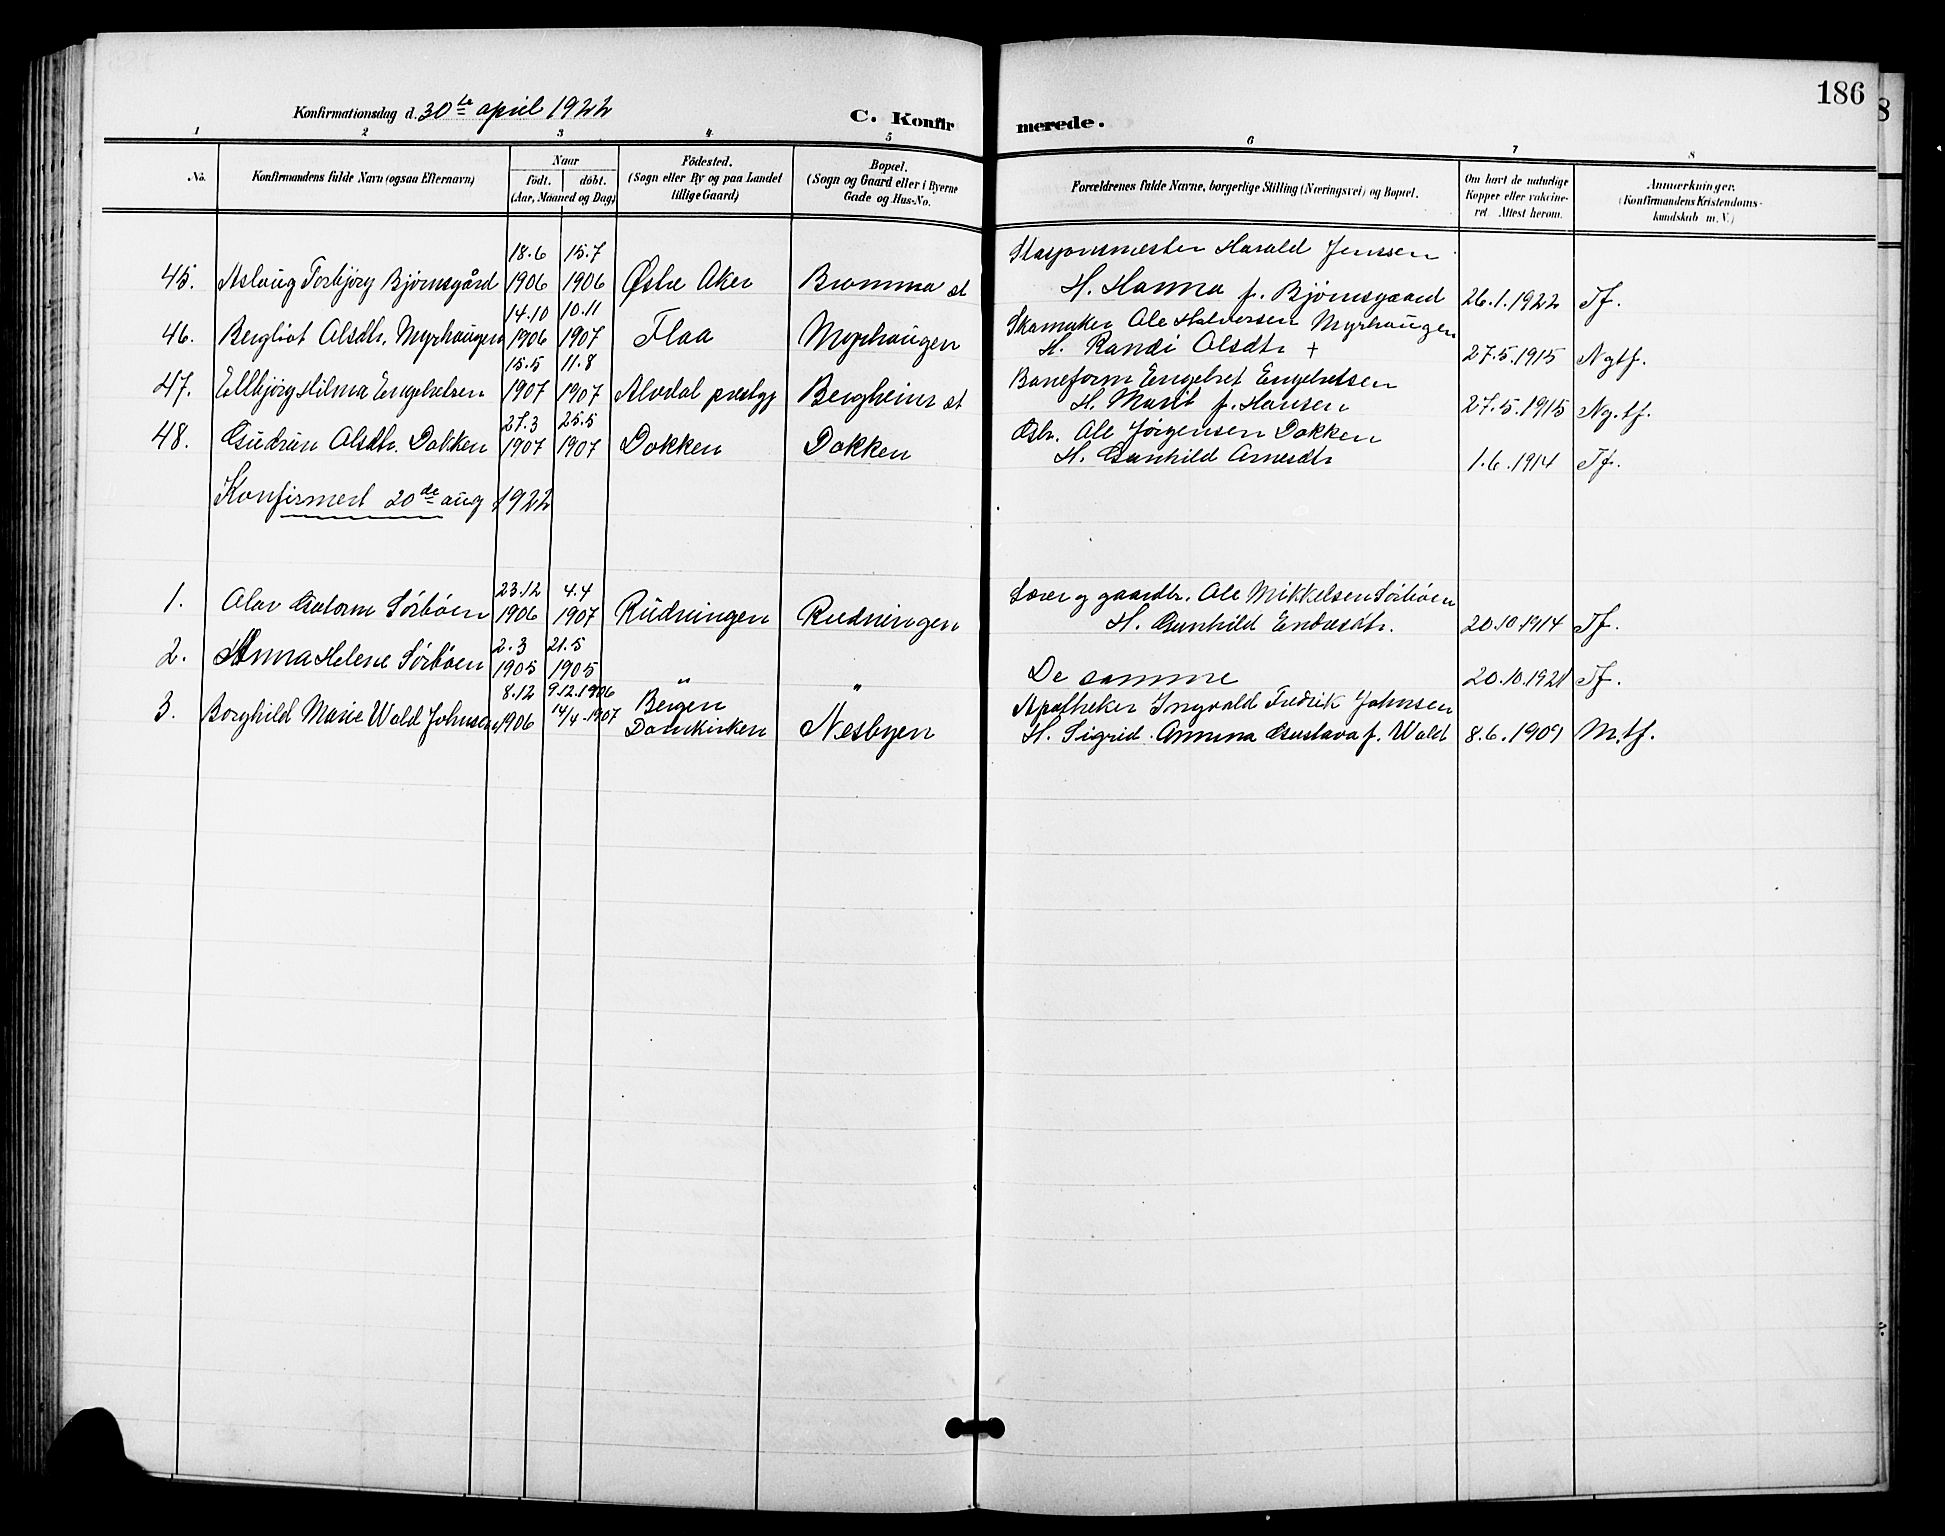 186
Konfirmationsdag d. 30te april 1922
C. Konfirmerede.
1 2 3 4 5 6 7 8
No.
Konfirmandens fulde Navn (ogsaa Efternavn)
Naar
födt. döbt.
(Aar, Maaned og Dag)
Födested.
(Sogn eller By og paa Landet
tillige Gaard)
Bopæl.
(Sogn og Gaard eller i Byerne
Gade og Hus-No.
Forældrenes fulde Navne, borgerlige Stilling (Næringsvei) og Bopæl.
Om havt de naturlige
Kopper eller vakcine-
ret Attest herom.
Anmærkninger.
(Konfirmandens Kristendoms-
kundskab m. V.)
18.6 15.7 Stasjonsmester Harald Jenssen
45. Aslaug Torbjørg Bjørnsgård 1906 1906 Østre Aker Bromma st H. Hanna f. Bjørnsgaard 26.1.1922 Tf.
14.10 10.11 Skomaker Ole Halvorsen Myrhaugen
46. Bergliot Olsdtr. Myrhaugen 1906 1907 Flaa Myrhaugen H. Randi Olsdtr + 27.5.1915 Ngtf.
15.5 11.8 Baneform Engebret Engebretsen
47. Ellbjørg Hilma Engebretsen 1907 1907 Alvdal prestgj Bergheim st H. Marit f. Hansen 27.5.1915 Ng.tf.
27.3 25.5 Gbr. Ole Jørgensen Dokken
48. Gudrun Olsdtr. Dokken 1907 1907 Dokken Dokken H. Gunhild Arnesdtr 1.6.1914 Tf.
Konfirmert 20de aug 1922
23.12 4.4 Lærer og gaardbr. Ole Mikkelsen Sörböen
1. Olav Gutorm Sörböen 1906 1907 Rudningen Rudningen H. Gunhild Endresdtr. 20.10.1914 Tf.
2.3 21.5
2. Anna Helene Sörböen 1905 1905 " " De samme 20.10.1921 Tf.
8.12 9.12.1906 Bergen Apotheker Ingvald Fredrik Johnsen
3. Borghild Marie Wold Johnsen 1906 14/4.1907 Domkirken Nesbyen H. Sigrid Ammina Gustava f. Wold 8.6.1909 M.tf.